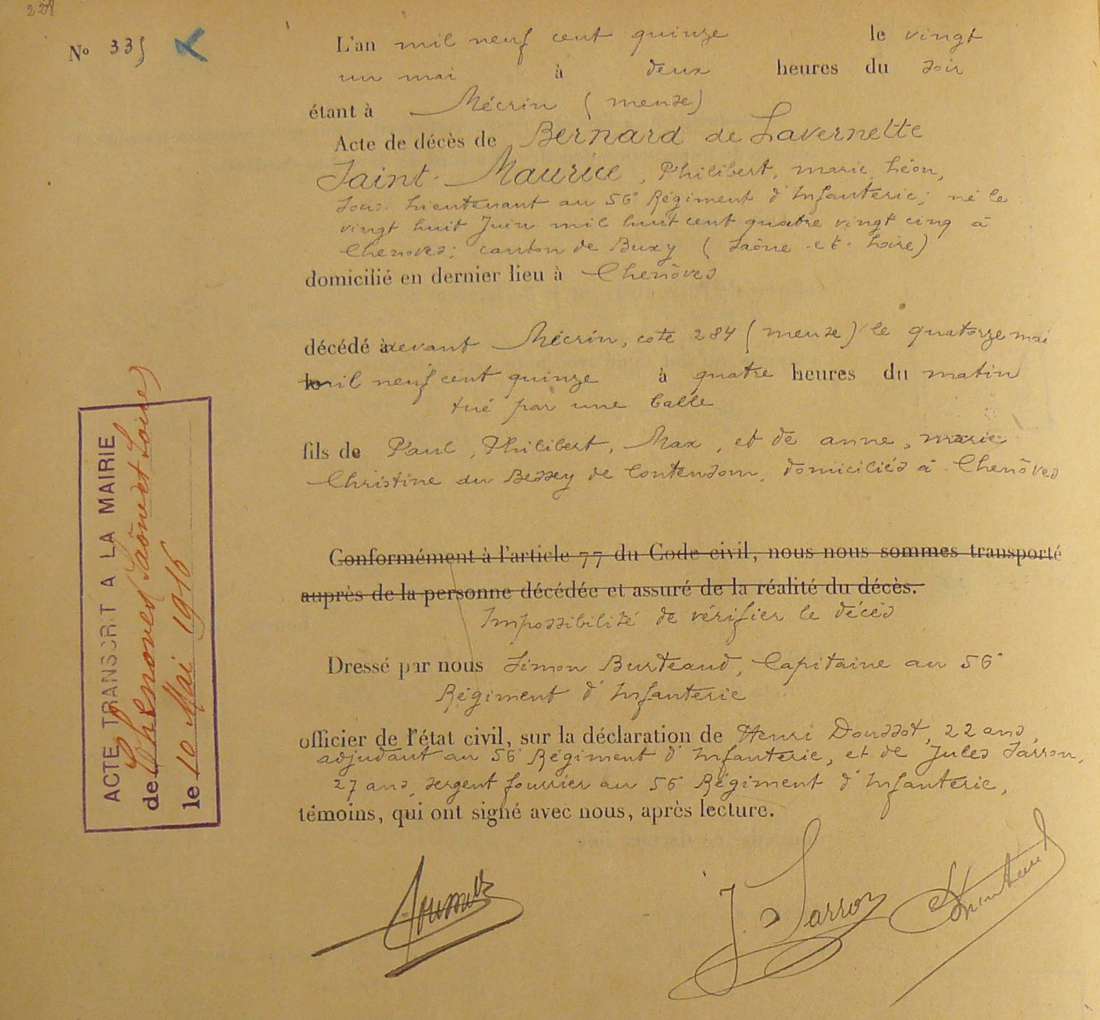 221
N° 335
L'an mil neuf cent quinze le vingt
un mai à deux heures du soir
étant à Mécrin (meuse)
Acte de décès de Bernard de Lavernette
Saint-Maurice, Philibert, marie, Léon,
Sous-Lieutenant au 56e Régiment d'Infanterie; né le
vingt huit Juin mil huit cent quatre vingt cinq à
Chenôves; canton de Buxy (Saône-et-Loire)
domicilié en dernier lieu à Chenôves
décédé à devant Mécrin, cote 284 (meuse) le quatorze mai
mil neuf cent quinze à quatre heures du matin
tué par une balle
fils de Paul, Philibert, Max, et de anne, marie
Christine du Bessey de Contenson, domiciliés à Chenôves
Conformément à l'article 77 du Code civil, nous nous sommes transporté
auprès de la personne décédée et assuré de la réalité du décès.
Impossibilité de vérifier le décès
Dressé par nous Simon Burteaud, Capitaine au 56e
Régiment d'Infanterie
officier de l'état civil, sur la déclaration de Henri Doussot, 22 ans,
adjudant au 56e Régiment d'Infanterie, et de Jules Sarron,
27 ans, sergent fourrier au 56e Régiment d'Infanterie,
témoins, qui ont signé avec nous, après lecture.
J. Sarron
ACTE TRANSCRIT A LA MAIRIE
de Chenoves (Saône et Loire)
le 10 Mai 1916